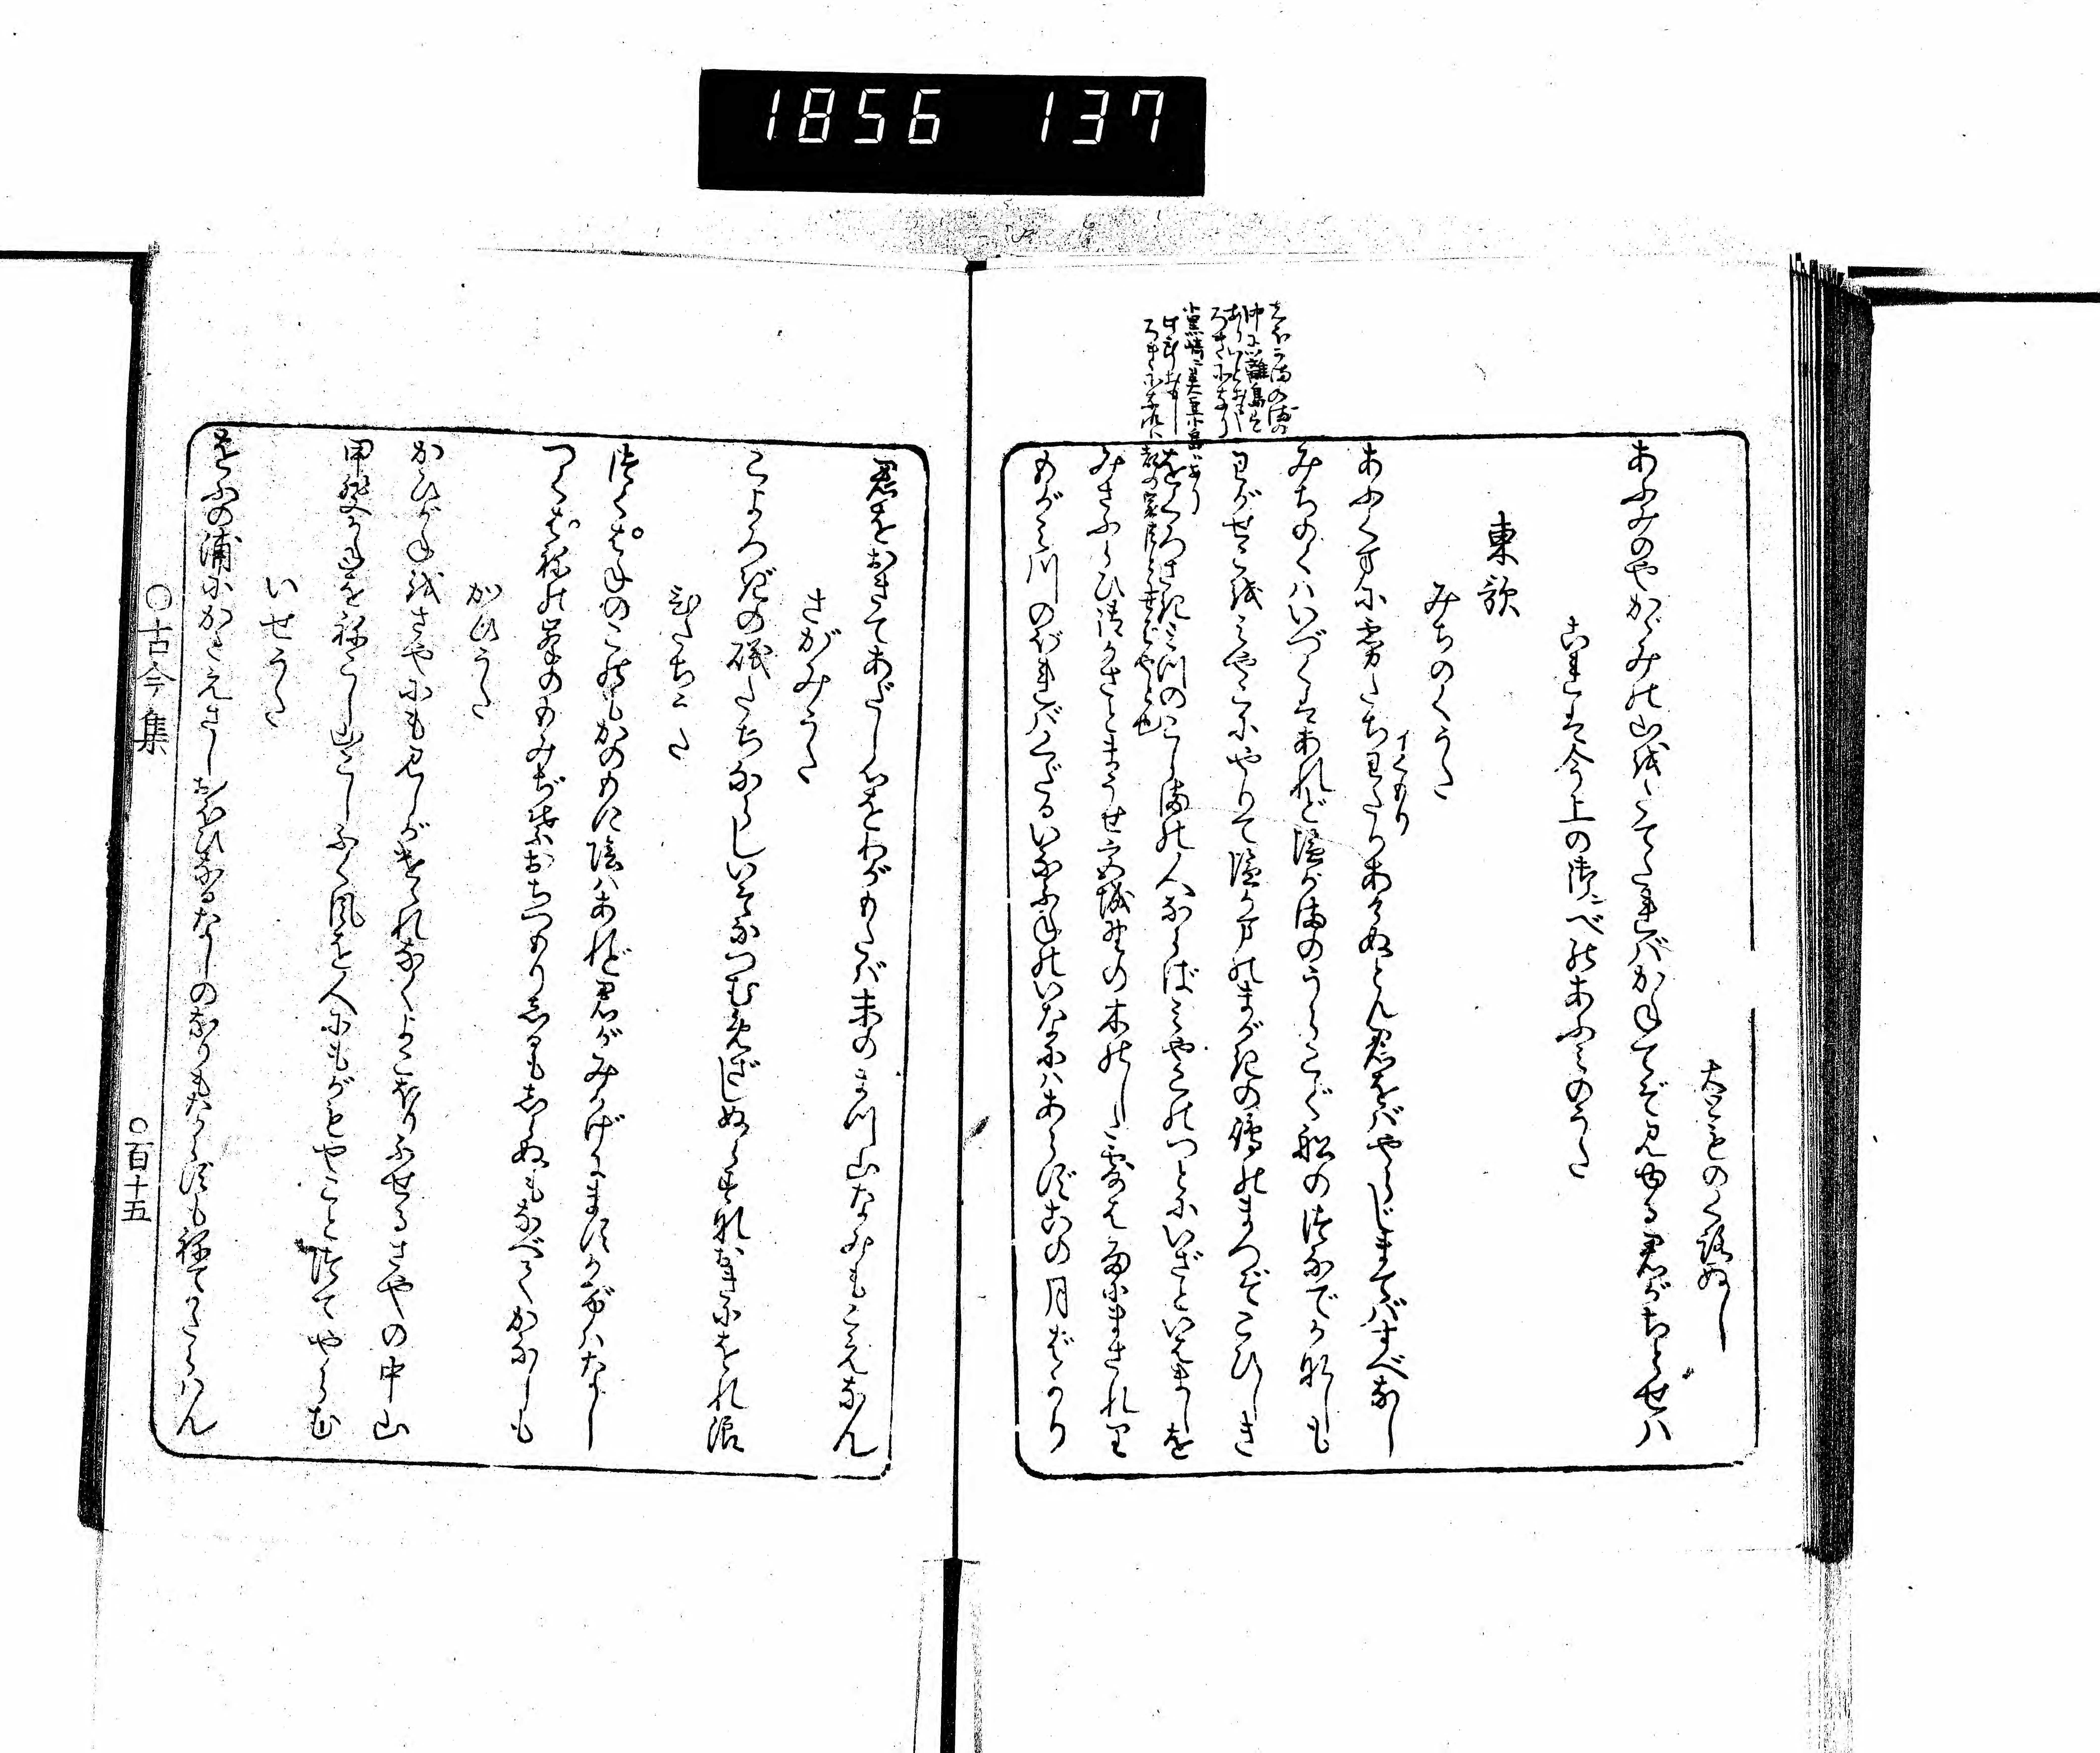 1856 137
大ともの くろぬし
あふみのやかゞみの山をたてたればかねてぞ見ゆる君がちとせハ
これは今上の御べのあふみのうた
東歌
みちのくうた
あふくまに霧たちわたりあけぬとも君をバやらじまてバすべなし
みちのくハいづくはあれど塩がまのうらこぐ舩のつなでかなしも
わがせこをみやこにやりて塩がまのまがきの嶋のまつぞこひしき
をぐろさきみつのこじまの人ならばみやこのつとにいざといはましを
みさふらひ御かさとまうせ宮城野の木のした露は雨にまされり
もがみ川のぼればくだるいなふねのいなにハあらずこの月ばかり
君をおきてあだし心をわがもたバ末のまつ山なみもこえなん
さがみうた
こよろぎの礒たちならしいそなつむめざしぬらすなおきにをれ浪
ひたちうた
つくばねのこのもかのもに陰ハあれど君がみかげにますかげハなし
つくばねの峯のもみぢ葉おちつもりしるもしらぬもなべてかなしも
かひうた
かひがねをさやにも見しがけゝれなくよこほりふせるさやの中山
甲斐がねをねこし山こしふく風を人にもがもやことづてやらむ
いせうた
をふの浦にかたえさしおほひなるなしのなりもならずもねてかたらハん
〇古今集
〇百十五